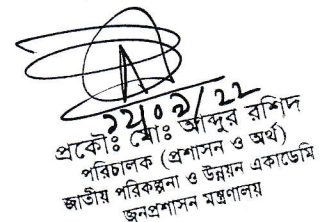 ২৫০৯/২২
প্রকৌঃ মোঃ আব্দুর রশিদ
পরিচালক (প্রশাসন ও অর্থ)
জাতীয় পরিকল্পনা ও উন্নয়ন একাডেমি
জনপ্রশাসন মন্ত্রণালয়